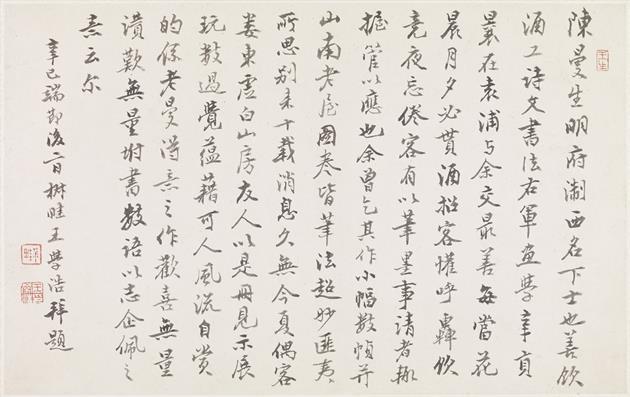 陳曼生明府淛西名下士也善飲
酒工詩文書法右軍畫學
曩在袁浦与余交最善每當花
晨月夕必貰酒招客懽呼轟飲
竟夜忘倦客有以筆墨事請者輙
握管以應也余曾乞其作小幅數幀并
山南老屋圖卷皆筆法超妙匪夷
所思别来十載消息久無今夏偶客
娄東虚白山房友人以是冊見示展
玩數過覺蘊藉可人風流自賞
的係老曼得意之作歡喜無量
讚歎無量坿書數語以志企佩之
意云尔
辛巳端節後二日椒畦王學浩拜題